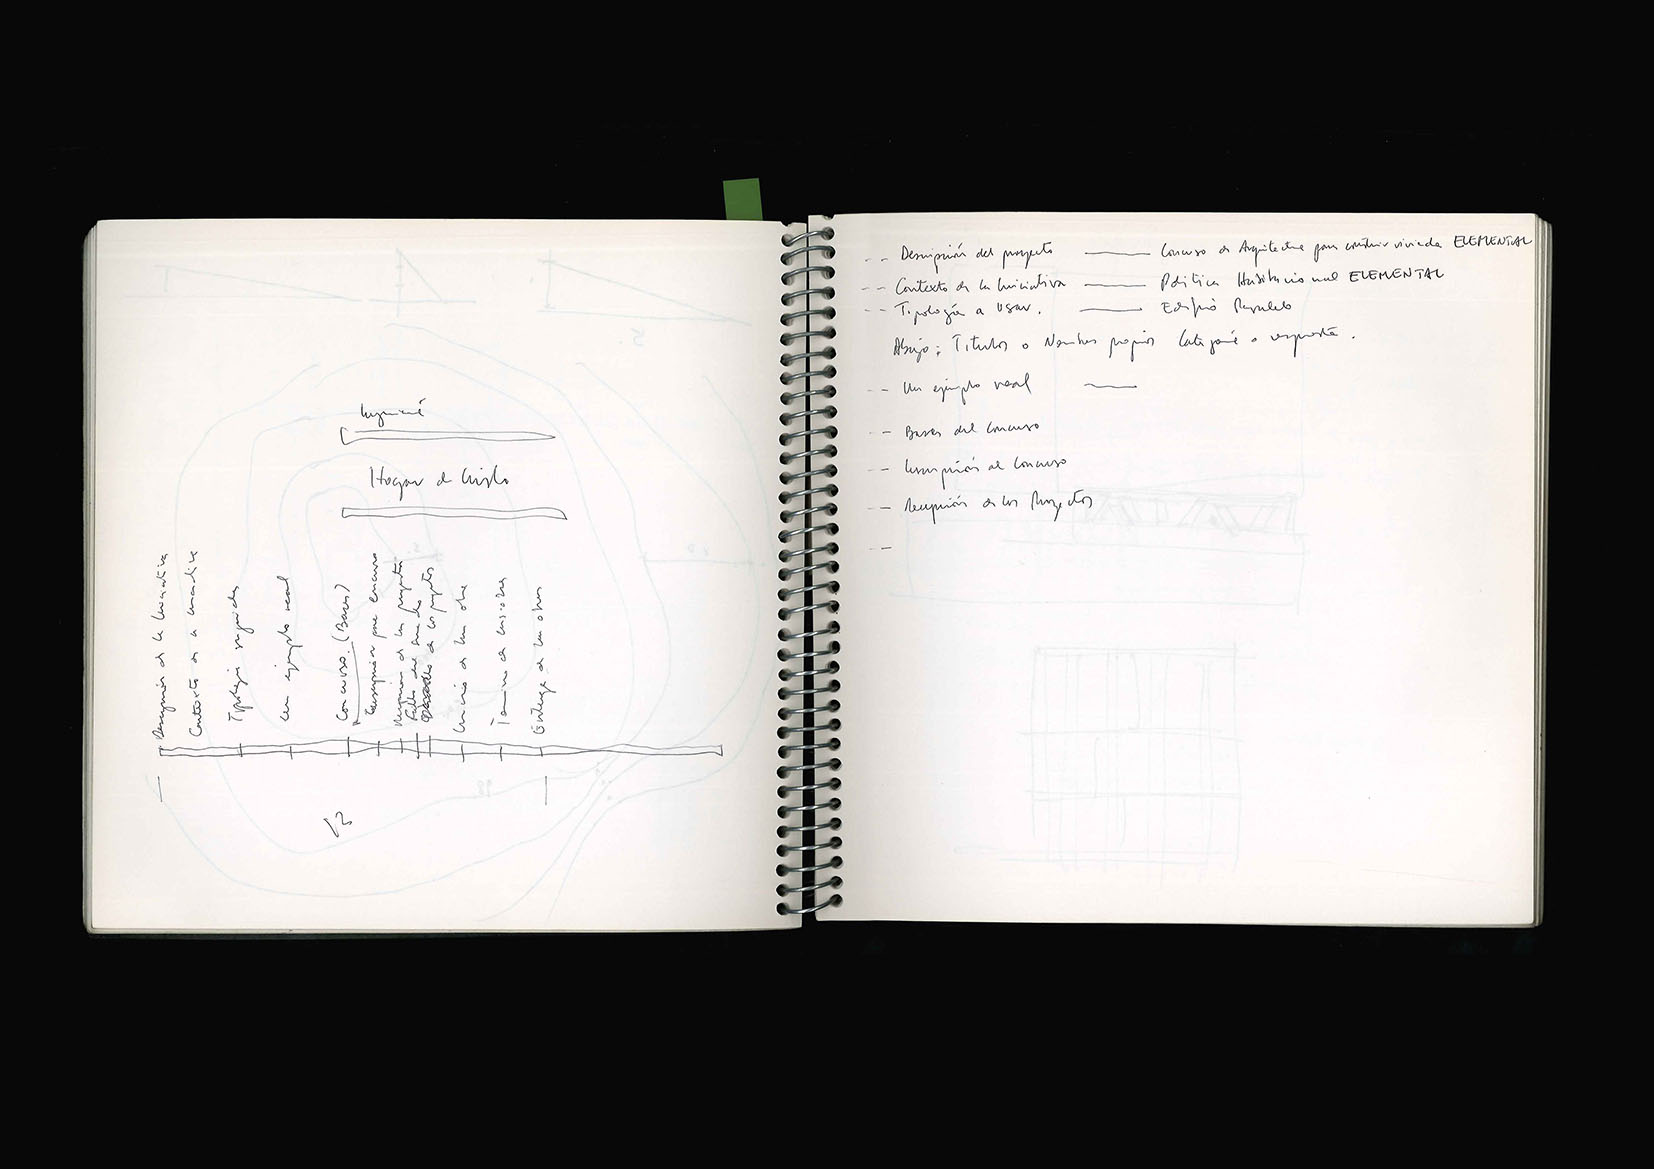 Ingeniería
Hogar de Cristo
Descripción de la Iniciativa
Contexto de la iniciativa
Tipologías
un ejemplo real
Concurso (Bases)
Inscripción por concurso
Recepción de los proyectos
de los proyectos
Inicio de las obras
Término de las obras
Entrega de las obras
-- Descripción del proyecto —— Concurso de Arquitectura para construir vivienda ELEMENTAL
-- Contexto de la Iniciativa —— Política Habitacional ELEMENTAL
-- Tipología a usar. —— Edificio Paralelo
Abajo: Títulos o Nombres propios Categoría o respuesta.
-- Un ejemplo real ——
-- Bases del Concurso
-- Inscripción al Concurso
-- Recepción de los Proyectos
--